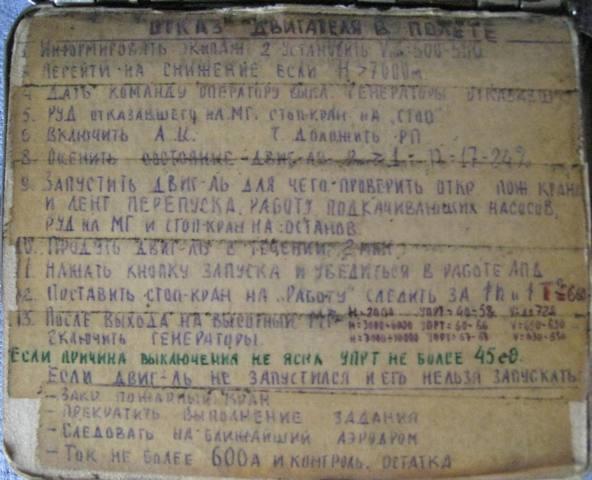 ОТКАЗ ДВИГАТЕЛЯ В ПОЛЕТЕ
1. ИНФОРМИРОВАТЬ ЭКИПАЖ 2 УСТАНОВИТЬ V
3 ПЕРЕЙТИ НА СНИЖЕНИЕ ЕСЛИ H>7000м
4 ДАТЬ КОМАНДУ ОПЕРАТОРУ ВЫКЛ. ГЕНЕРАТОРЫ
5. РУД ОТКАЗАВШЕГО НА МГ. СТОП-КРАН НА „СТОП"
6 ВКЛЮЧИТЬ 7. ДОЛОЖИТЬ РП
8. ОЦЕНИТЬ СОСТОЯНИЕ ДВИГ-ЛЯ
9. ЗАПУСТИТЬ ДВИГ-ЛЬ ДЛЯ ЧЕГО ПРОВЕРИТЬ ОТКР. ПОЖ КРАНА
И ЛЕНТ ПЕРЕПУСКА, РАБОТУ ПОДКАЧИВАЮЩИХ НАСОСОВ,
РУД НА МГ И СТОП-КРАН НА ОСТАНОВ.
10. ПРОДУТЬ ДВИГ-ЛЬ В ТЕЧЕНИИ 2 МИН
11. НАЖАТЬ КНОПКУ ЗАПУСКА И УБЕДИТЬСЯ В РАБОТЕ АПД
12. ПОСТАВИТЬ СТОП-КРАН НА „РАБОТУ" СЛЕДИТЬ ЗА
13. ПОСЛЕ ВЫХОДА НА ВЫСОТНЫЙ МГ
ВКЛЮЧИТЬ ГЕНЕРАТОРЫ.
ЕСЛИ ПРИЧИНА ВЫКЛЮЧЕНИЯ НЕ ЯСНА УПРТ НЕ БОЛЕЕ 45ед.
ЕСЛИ ДВИГ-ЛЬ НЕ ЗАПУСТИЛСЯ И ЕГО НЕЛЬЗЯ ЗАПУСКАТЬ
- ЗАКР ПОЖАРНЫЙ КРАН
- ПРЕКРАТИТЬ ВЫПОЛНЕНИЕ ЗАДАНИЯ
- СЛЕДОВАТЬ НА БЛИЖАЙШИЙ АЭРОДРОМ
- ТОК НЕ БОЛЕЕ 600А И КОНТРОЛЬ. ОСТАТКА